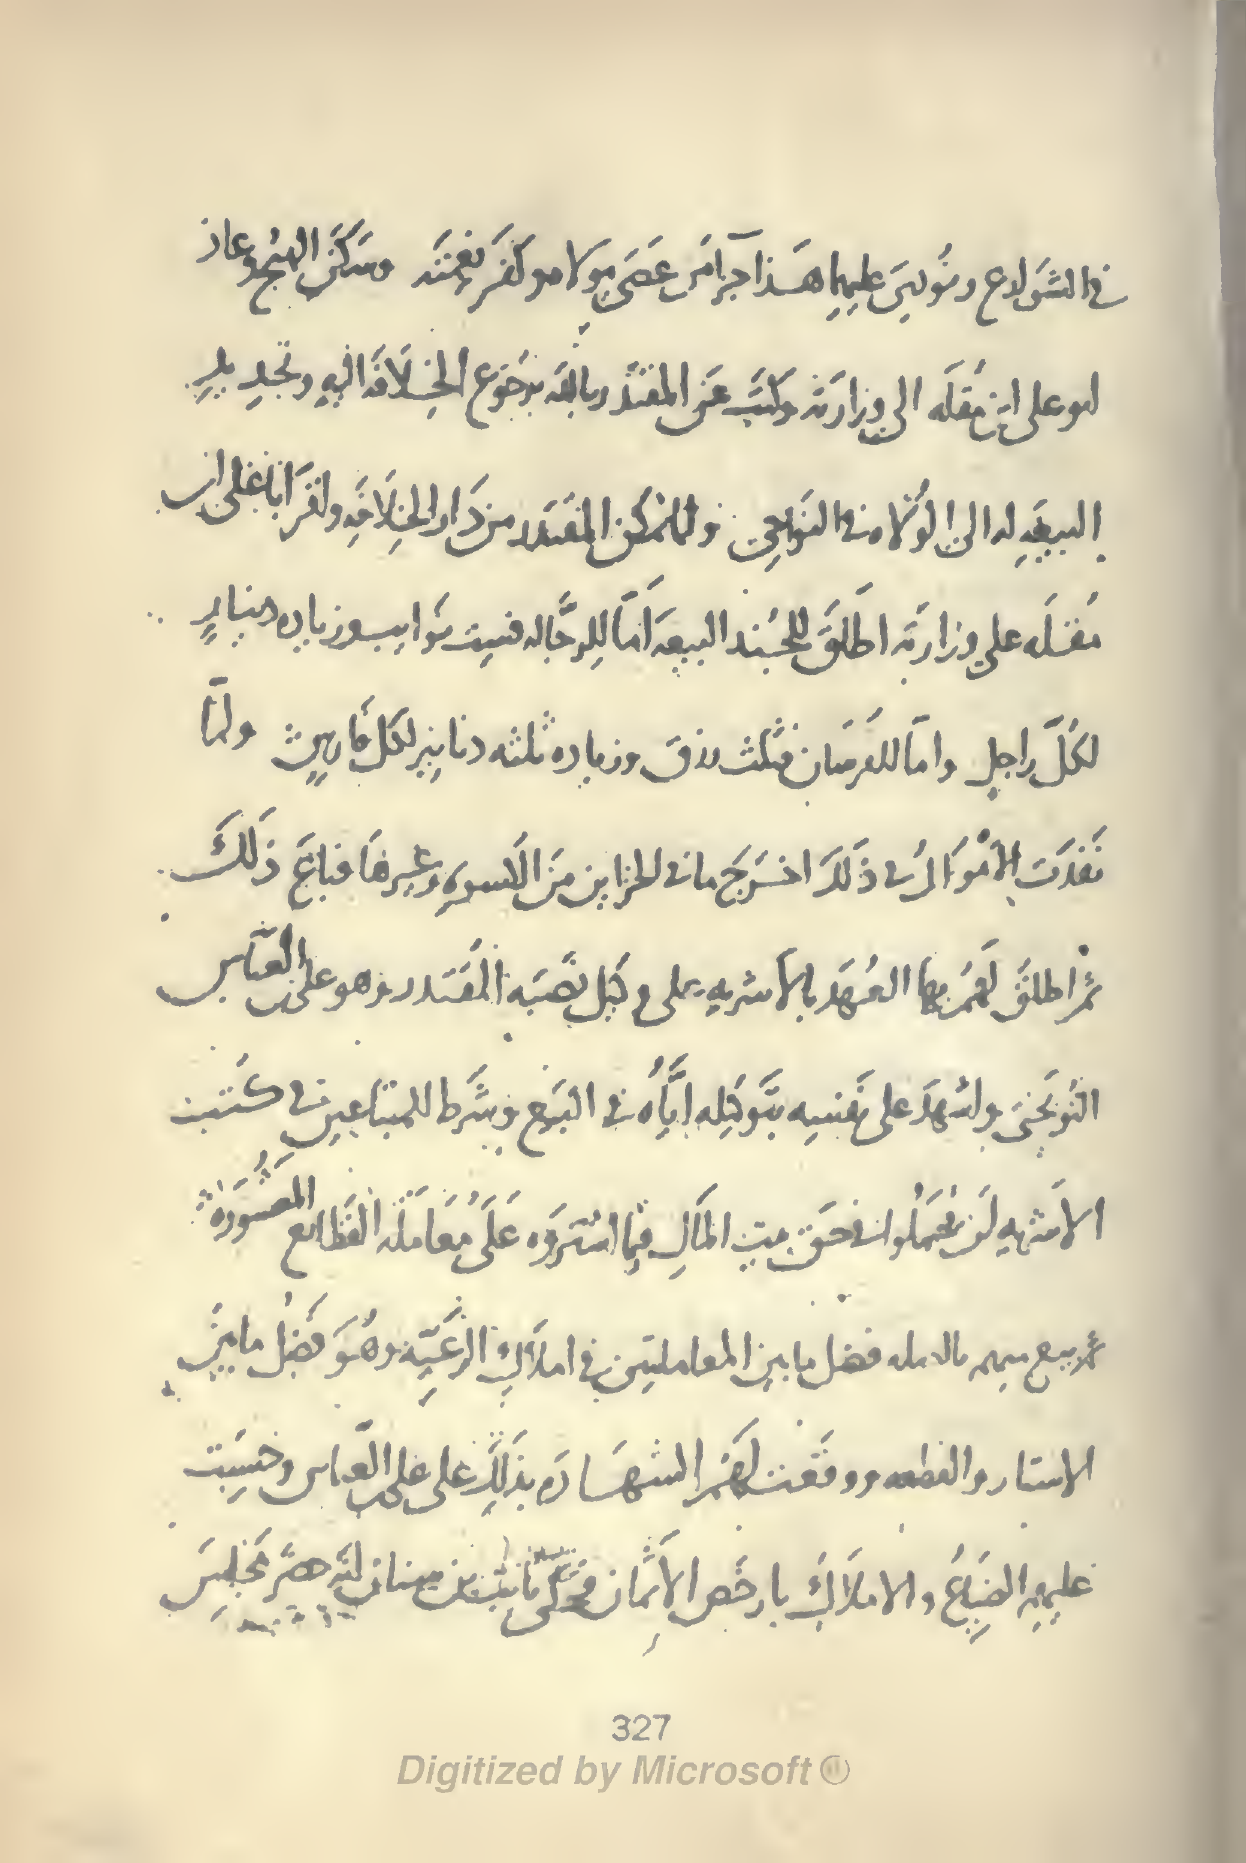 في الشوارع ونودي عليهما هذا جزا من عصى مولاه وكفر نعمته وسكن الهيج وعاد
ابو على ابن مقله الى وزارته وكتب عن المقتدر بالله برجوع الخلافة اليه وتجديد
البيعه له الى الولاه في النواحي ولما تمكن المقتدر من دار الخلافه واقر ابا على ابن
مقله على وزارته اطلق للجند البيعه اما للرجاله فست نوايب وزياده دينار
لكل راجل واما للفرسان فثلث رزق وزياده ثلثه دنانير لكل فارس ولما
نفدت الاموال في ذلك اخرج ما في الخزاين من الكسوه وغيرها فباع ذلك
ثم اطلق لهم بيع العهد بالاشريه على وكيل نصبه المقتدر وهو على بن العباس
النوبختي واشهد على نفسه بتوكيله اياه في البيع وشرط للمبتاعين في كتب
الاشريه ان يحملوا في حق بيت المال فيما اشتروه على معامله القطايع
ثم بيع منهم بالصله فضل ما بين المعاملتين في املاك الرعيه وهو فضل ما بين
الاستان والقطيعه ووقعت لهم الشهاده بذلك على على بن العباس وحسبت
عليهم الضياع والاملاك بارخص الاثمان فحكى ثابت بن سنان انه حضر مجلس
327
Digitized by Microsoft ®